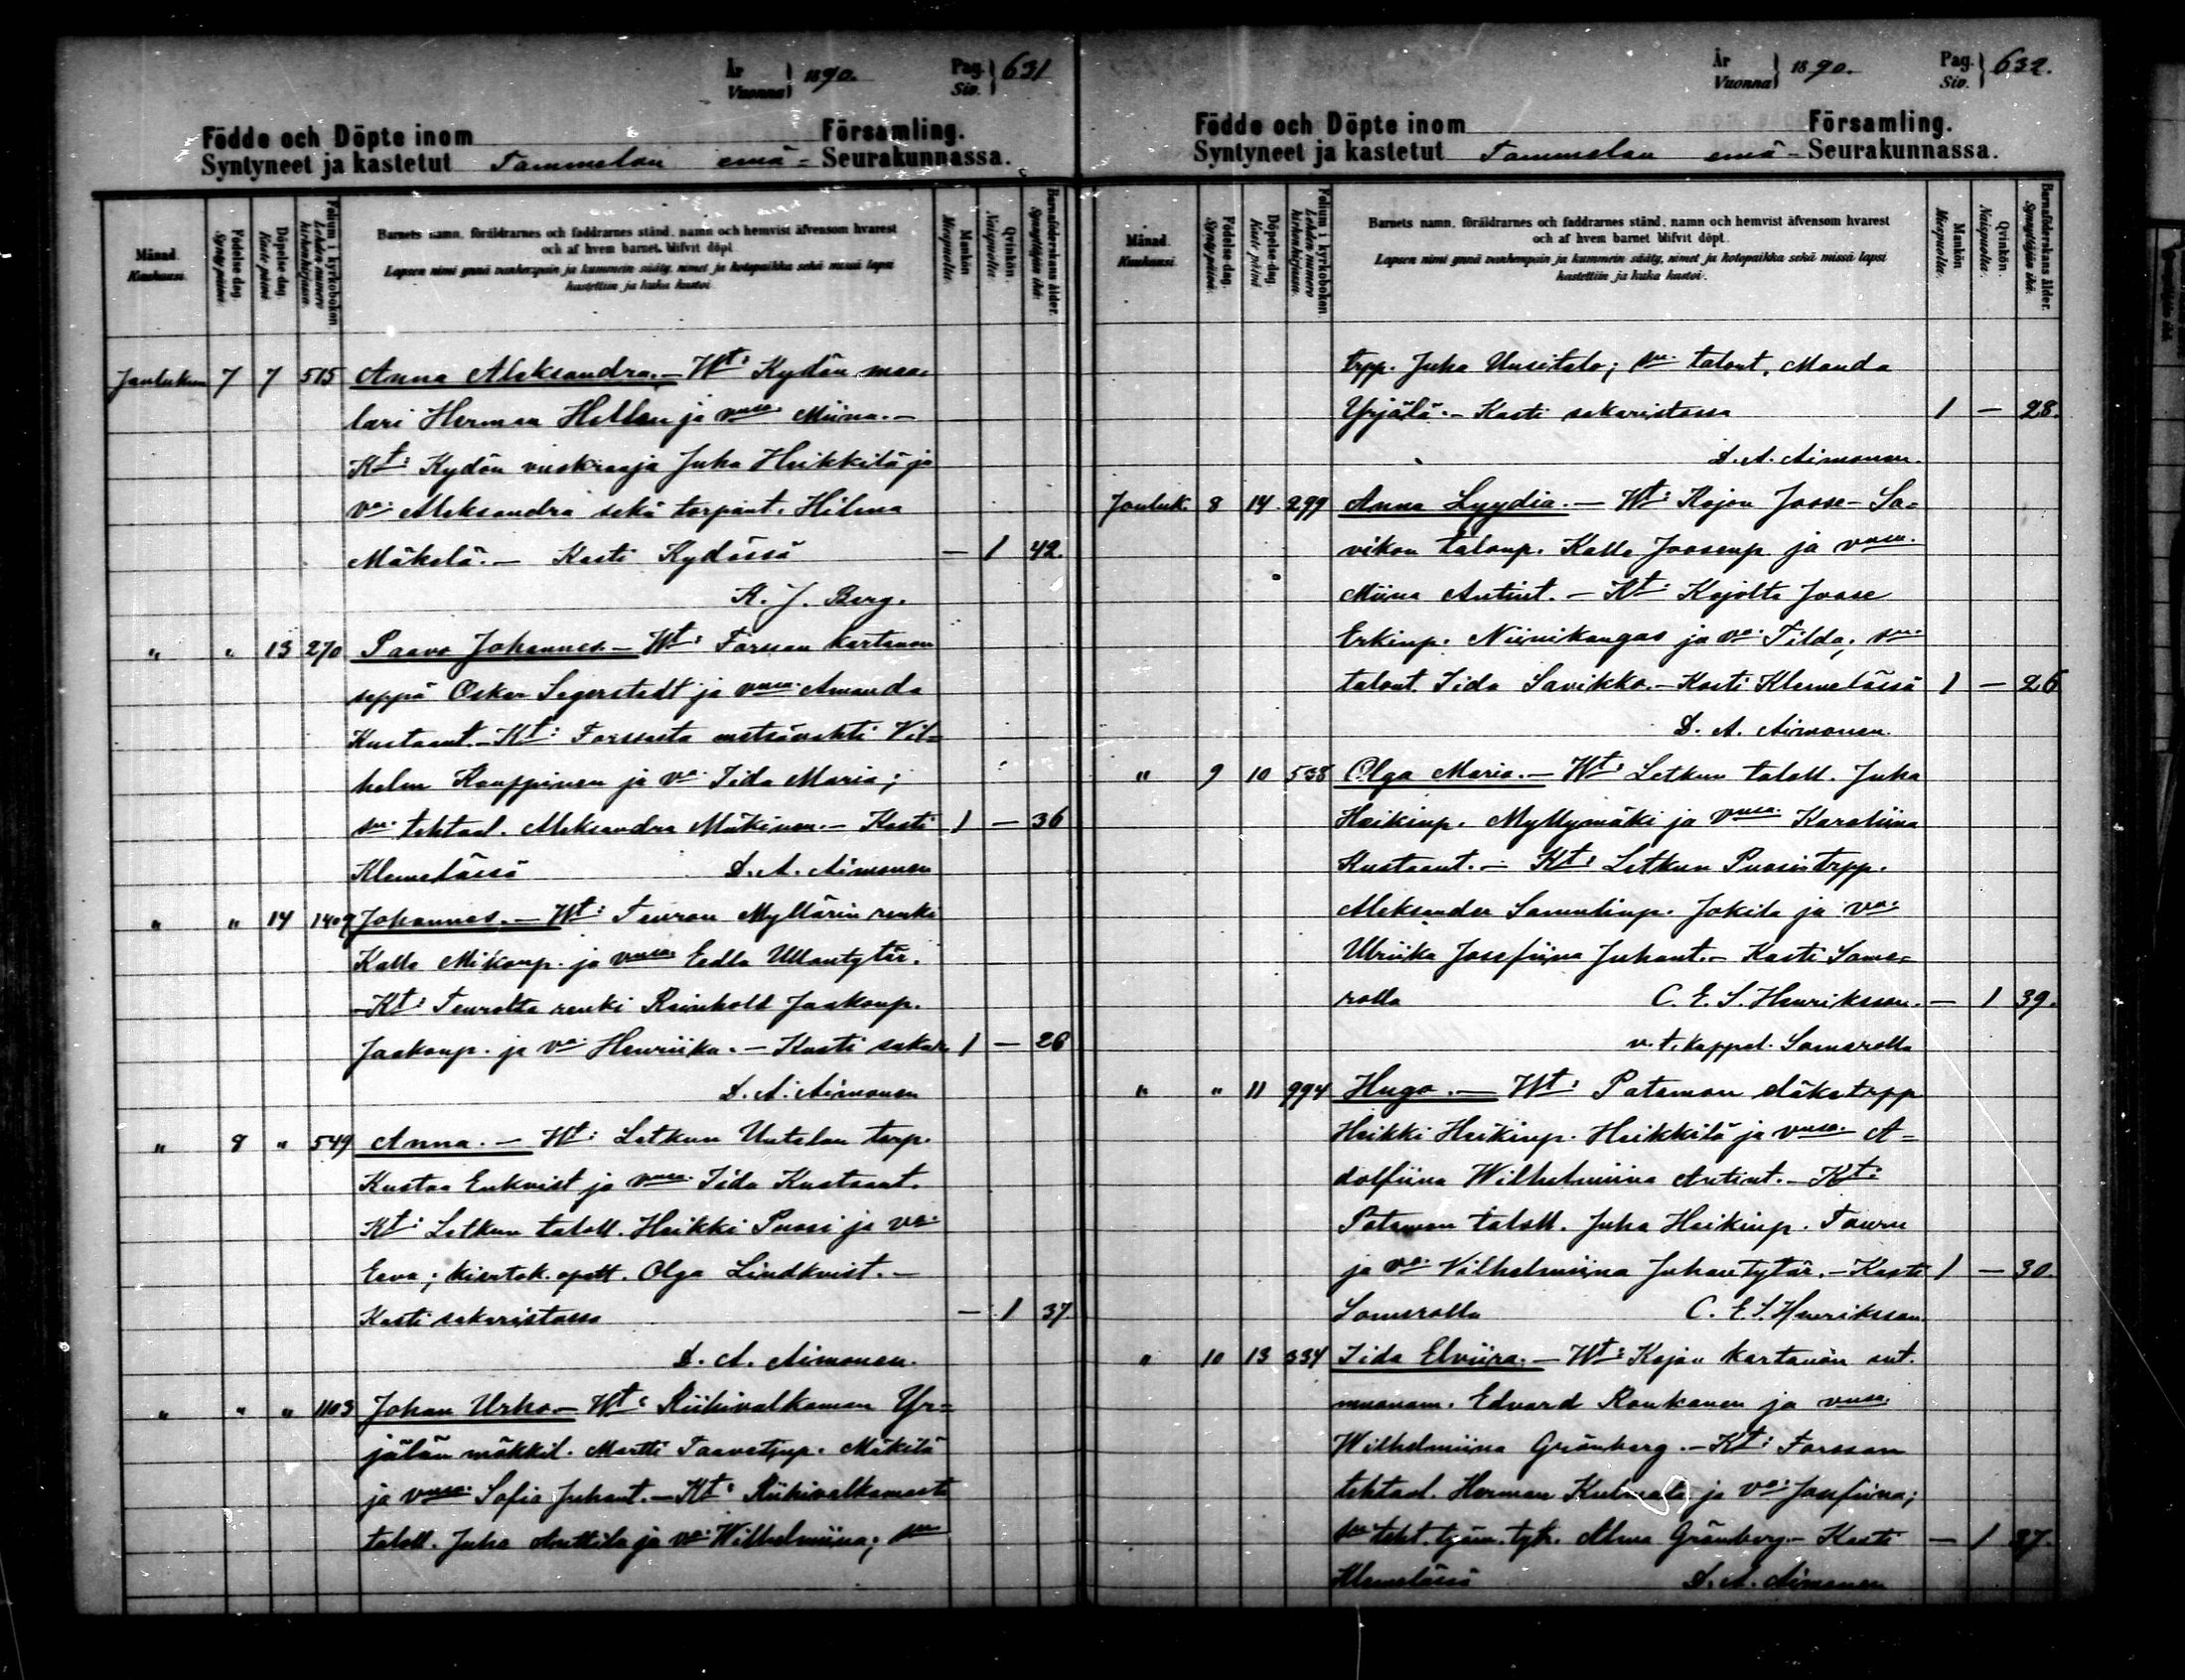 År
Vuonna } 1890. Pag.
Siv. } 631
Födde och Döpte inom Församling.
Syntyneet ja kastetut Tammelan emä- Seurakunnassa.
Månad. Kuukausi.
Födelse-dag. Synty päivä.
Döpelse-dag. Kaste päivä
Folium i kyrkoboken Lehden numero kirkonkirjassa.
Barnets namn, föräldrarnes och faddrarnes stånd, namn och hemvist äfvensom hvarest
och af hvem barnet blifvit döpt.
Lapsen nimi ynnä vanhempain ja kummein sääty, nimet ja kotopaikka sekä missä lapsi
kastettiin ja kuka kastoi.
Mankön Miespuolta.
Qvinkön. Naispuolta.
Barnaföderskans ålder. Synnyttäjän ikä.
Jouluku 7 7 515 Anna Aleksandra. - Wt: Kydön maa-
lari Herman Hellen ja vmsa. Miina. -
Kt: Kydön vuokraaja Juha Heikkilä ja
va. Aleksandra sekä torpant. Hilma
Mäkelä. - Kasti Kydössä - 1 42.
K. J. Berg.
" " 13 270 Paavo Johannes. - Wt: Forssan kartanon
seppä Oskar Segerstedt ja vmsa. Amanda
Kustaant. - Kt: Forssasta metsävahti Vil-
helm Kauppinen ja va. Iida Maria;
sm. tehtaal. Aleksandra Mäkinen. - Kasti 1 - 36
Klemelässä D. A. Aimonen
" " 14 1409 Johannes. - Wt: Teuron Myllärin renki
Kalle Mikonp. ja vmsa. Eedla Ullantytär.
- Kt: Teurolta renki Reinhold Jaakonp.
Jaakonp. ja va. Henriika. - Kasti sakar. 1 - 28
D. A. Aimonen
" 8 " 549 Anna. - Wt: Letkun Uutelan torp.
Kustaa Enkvist ja vmsa. Iida Kustaant.
Kt: Letkun taloll. Heikki Puosi ja va.
Eeva; kiertok. opett. Olga Lindkvist. -
Kasti sakaristossa - 1 37.
D. A. Aimonen.
" " " 1103 Johan Urho - Wt: Riihivalkaman Yr-
jälän mökkil. Martti Taavetinp. Mäkilä
ja vmsa. Sofia Juhant. - Kt: Riihivalkamasta
taloll. Juha Anttila ja va. Wilhelmiina; sm
År
Vuonna } 1890. Pag.
Siv. } 632.
Födde och Döpte inom Församling.
Syntyneet ja kastetut Tammelan emä- Seurakunnassa.
Månad. Kuukausi.
Födelse-dag. Synty päivä.
Döpelse-dag. Kaste päivä
Folium i kyrkoboken Lehden numero kirkonkirjassa.
Barnets namn, föräldrarnes och faddrarnes stånd, namn och hemvist äfvensom hvarest
och af hvem barnet blifvit döpt.
Lapsen nimi ynnä vanhempain ja kummein sääty, nimet ja kotopaikka sekä missä lapsi
kastettiin ja kuka kastoi.
Mankön Miespuolta.
Qvinkön. Naispuolta.
Barnaföderskans ålder. Synnyttäjän ikä.
trpp. Juha Uusitalo; sm. talont. Manda
Yrjälä. - Kasti sakaristossa 1 - 28.
D. A. Aimonen.
Jouluk. 8 14. 299 Anna Lyydia. - Wt: Kojon Joose-Sa-
vikon talonp. Kalle Joosenp. ja vmsa.
Miina Antint. - Kt: Kojolta Joose
Erkinp. Niinikangas ja va. Tilda; sm.
talont. Iida Savikko. - Kasti Klemelässä 1 - 26
D. A. Aimonen.
" 9 10 538 Olga Maria. - Wt: Letkun taloll. Juha
Heikinp. Myllymäki ja vmsa. Karoliina
Kustaant. - Kt: Letkun Puosin trpp.
Aleksander Samulinp. Jokila ja va:
Ulriika Josefiina Juhant. - Kasti Some-
rolla C. E. S. Henriksson. - 1 39.
v. t. kappal. Somerolla
" " 11 994 Hugo. - Wt: Patamon eläke trpp
Heikki Heikinp. Heikkilä ja vmsa. A-
dolfiina Wilhelmiina Antint. - Kt:
Patamon taloll. Juha Heikinp. Tauru
ja va. Vilhelmiina Juhantytär. - Kasti 1 - 30.
Somerolla C. E. S. Henriksson
" 10 13 334 Iida Elviira. - Wt: Kojon kartanon ent.
muonam. Edvard Ronkanen ja vmsa.
Wilhelmiina Grönberg. - Kt: Forssan
tehtaal. Herman Kulmala ja va: Josefiina;
sm. teht. työm. tytr. Alma Grönberg. - Kasti - 1 37.
Klemelässä D. A. Aimonen